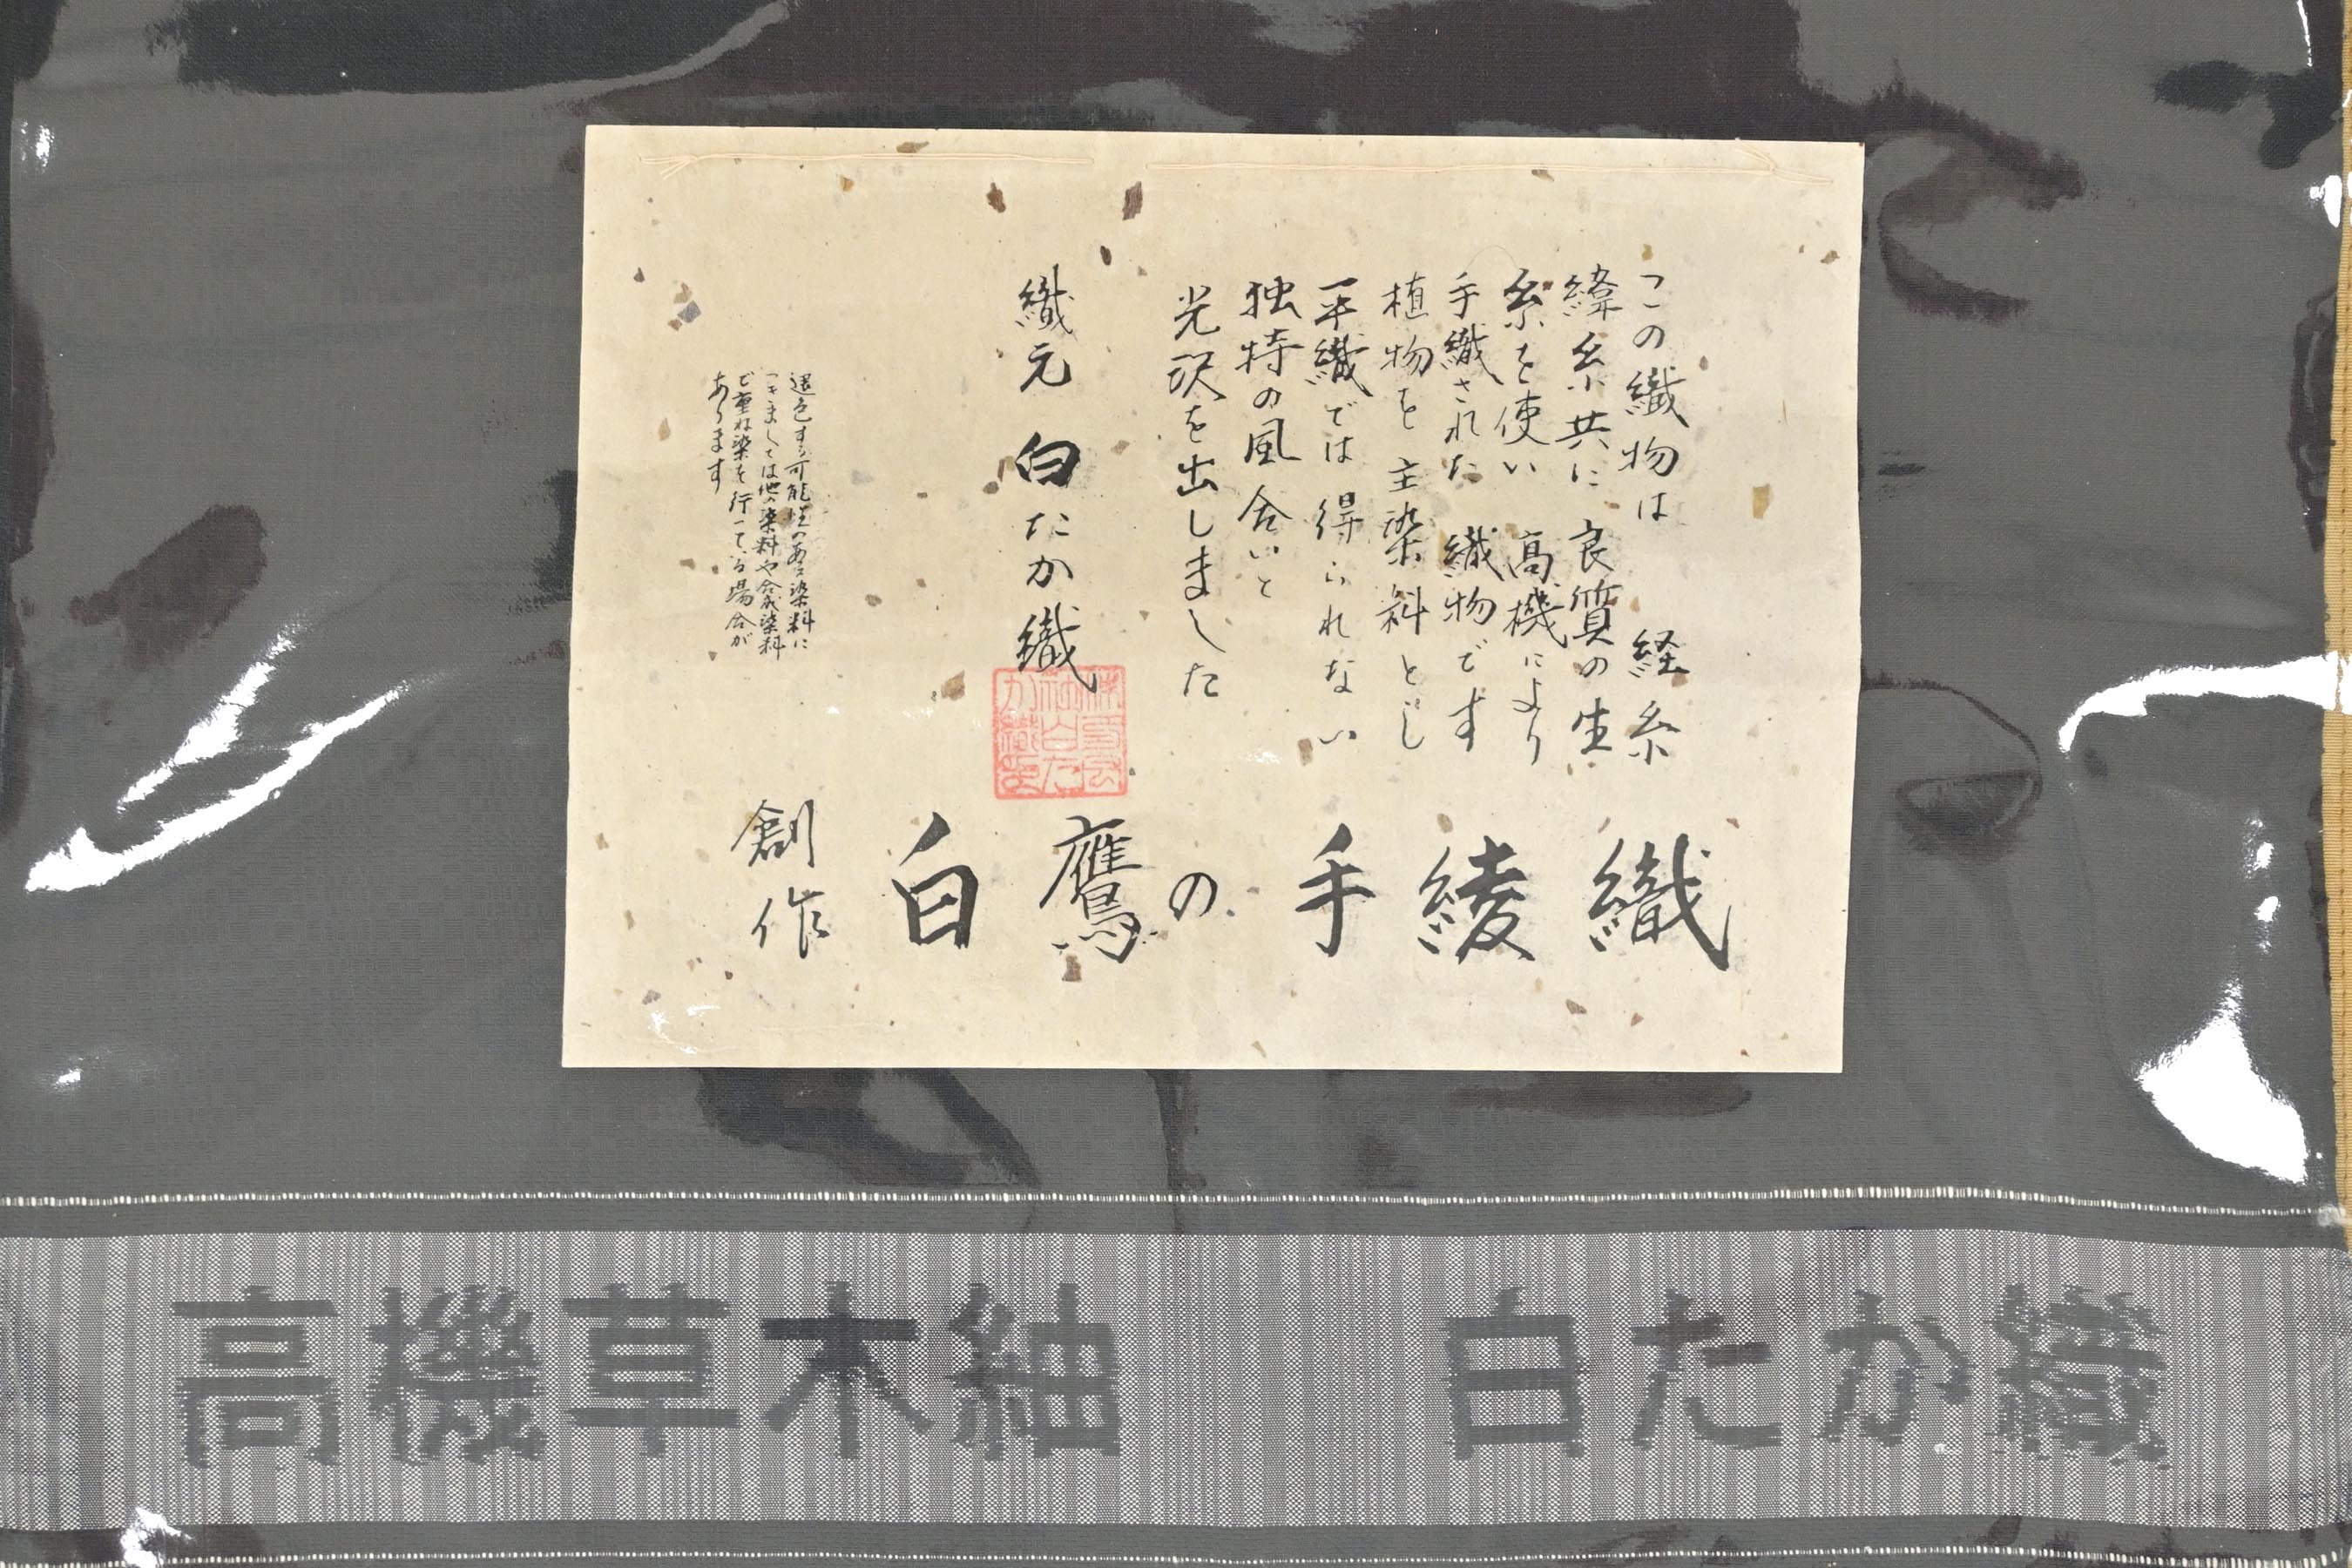 この織物は 経糸
緯糸共に 良質の生
糸を使い 高機により
手織された 織物です
植物を主染料とし
平織では得られない
独特の風合いと
光沢を出しました
織元 白たか織
株式会社白たか織印
退色する可能性のある染料に
つきましては他の染料や合成染料
で重ね染を行っている場合が
あります
創作 白鷹の手綾織
高機草木紬 白たか織